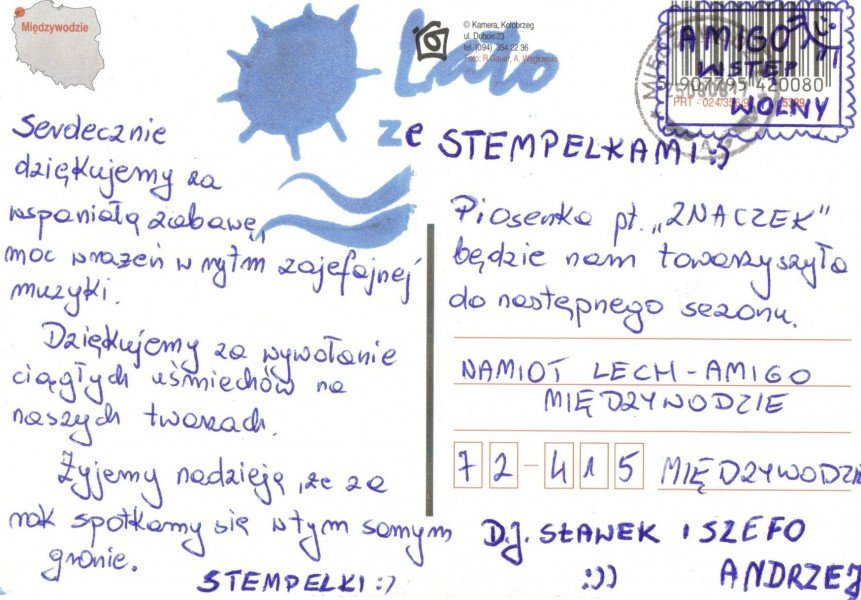 Międzywodzie
© Kamera, Kołobrzeg
ul. Dubois 23
tel. (094) 354 22 36
Foto: R. Bauer, A. Węgłowski
Lato
ze STEMPELKAMI :)
AMIGO
WSTĘP
WOLNY
5 907795 420080
Serdecznie
dziękujemy za
wspaniałą zabawę,
moc wrażeń w rytm zajefajnej
muzyki.
Dziękujemy za wywołanie
ciągłych uśmiechów na
naszych twarzach.
Żyjemy nadzieją, że za
rok spotkamy się w tym samym
gronie.
STEMPELKI :)
Piosenka pt. „ZNACZEK”
będzie nam towarzyszyła
do następnego sezonu.
NAMIOT LECH-AMIGO
MIĘDZYWODZIE
72-415 MIĘDZYWODZIE
D.J. SŁAWEK I SZEFO
:)) ANDRZEJ